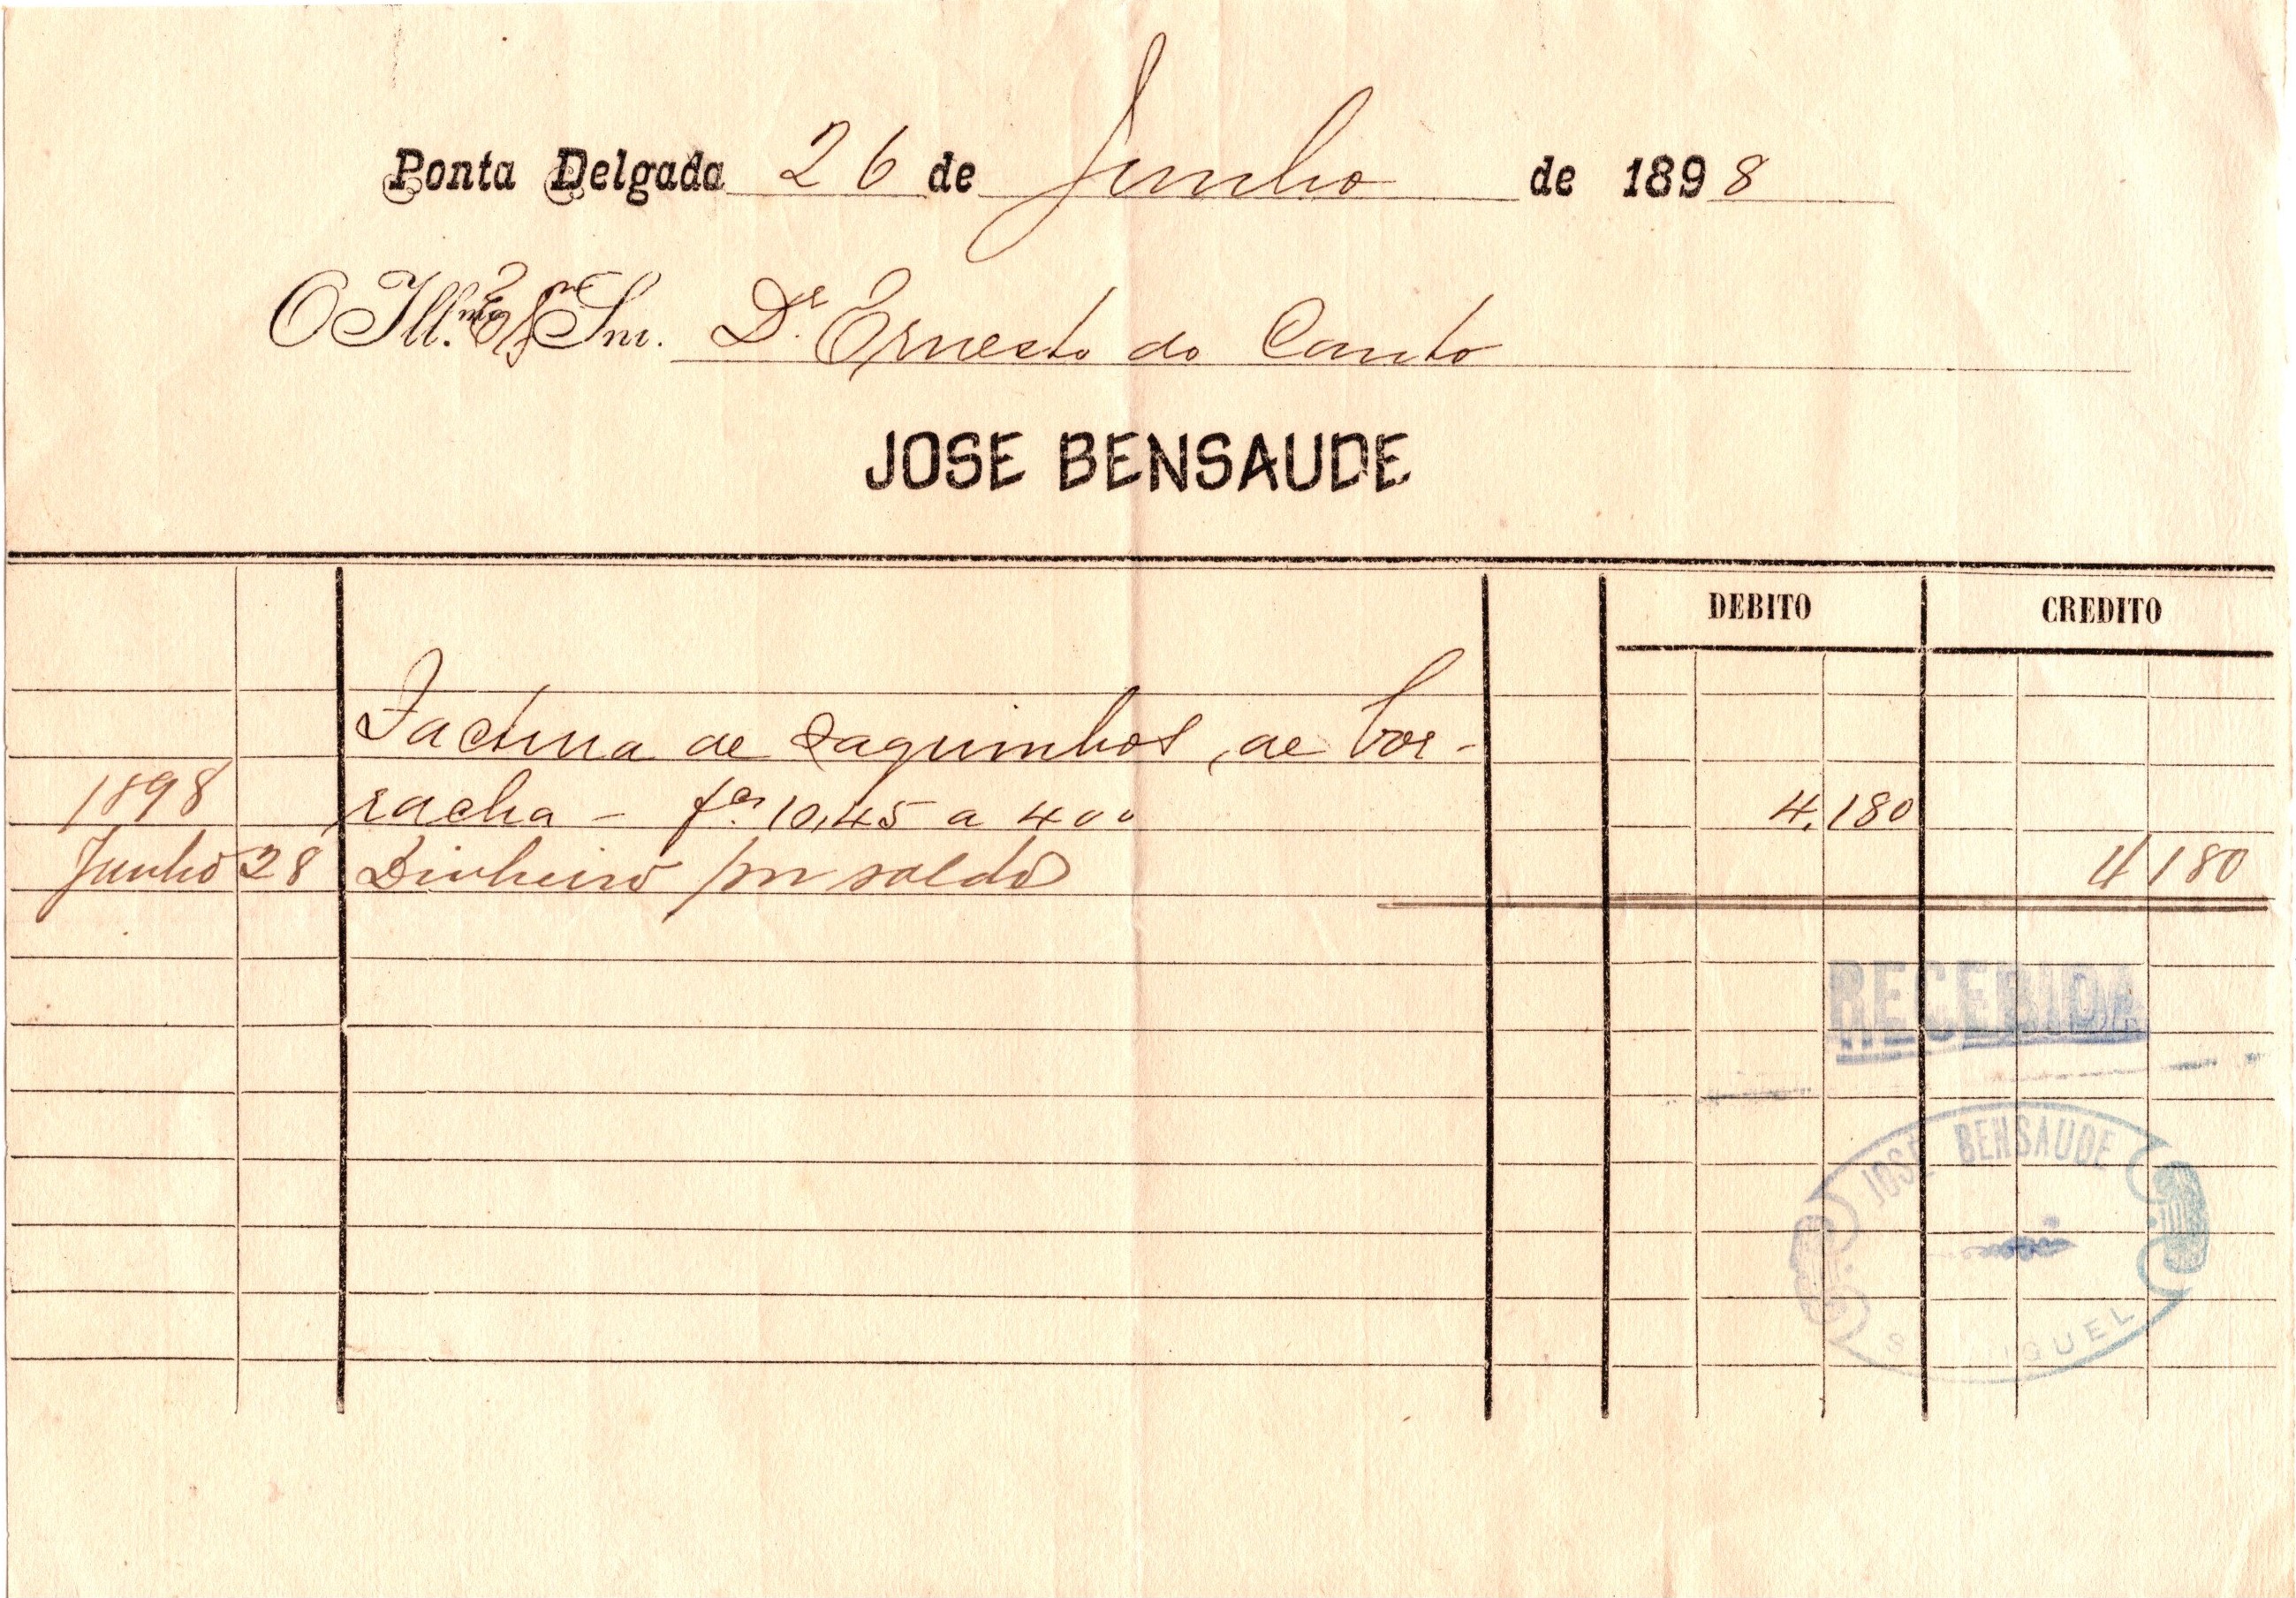 Ponta Delgada 26 de Junho de 1898
O Ill.mo Ex.mo Snr. Dr. Ernesto do Canto
JOSE BENSAUDE
DEBITO CREDITO
Factura de saquinhos, de bor-
1898 racha - fcos. 10,45 a 400 4.180
Junho 28 Dinheiro por saldo 4 180
RECEBIDA
JOSE BENSAUDE
S. MIGUEL